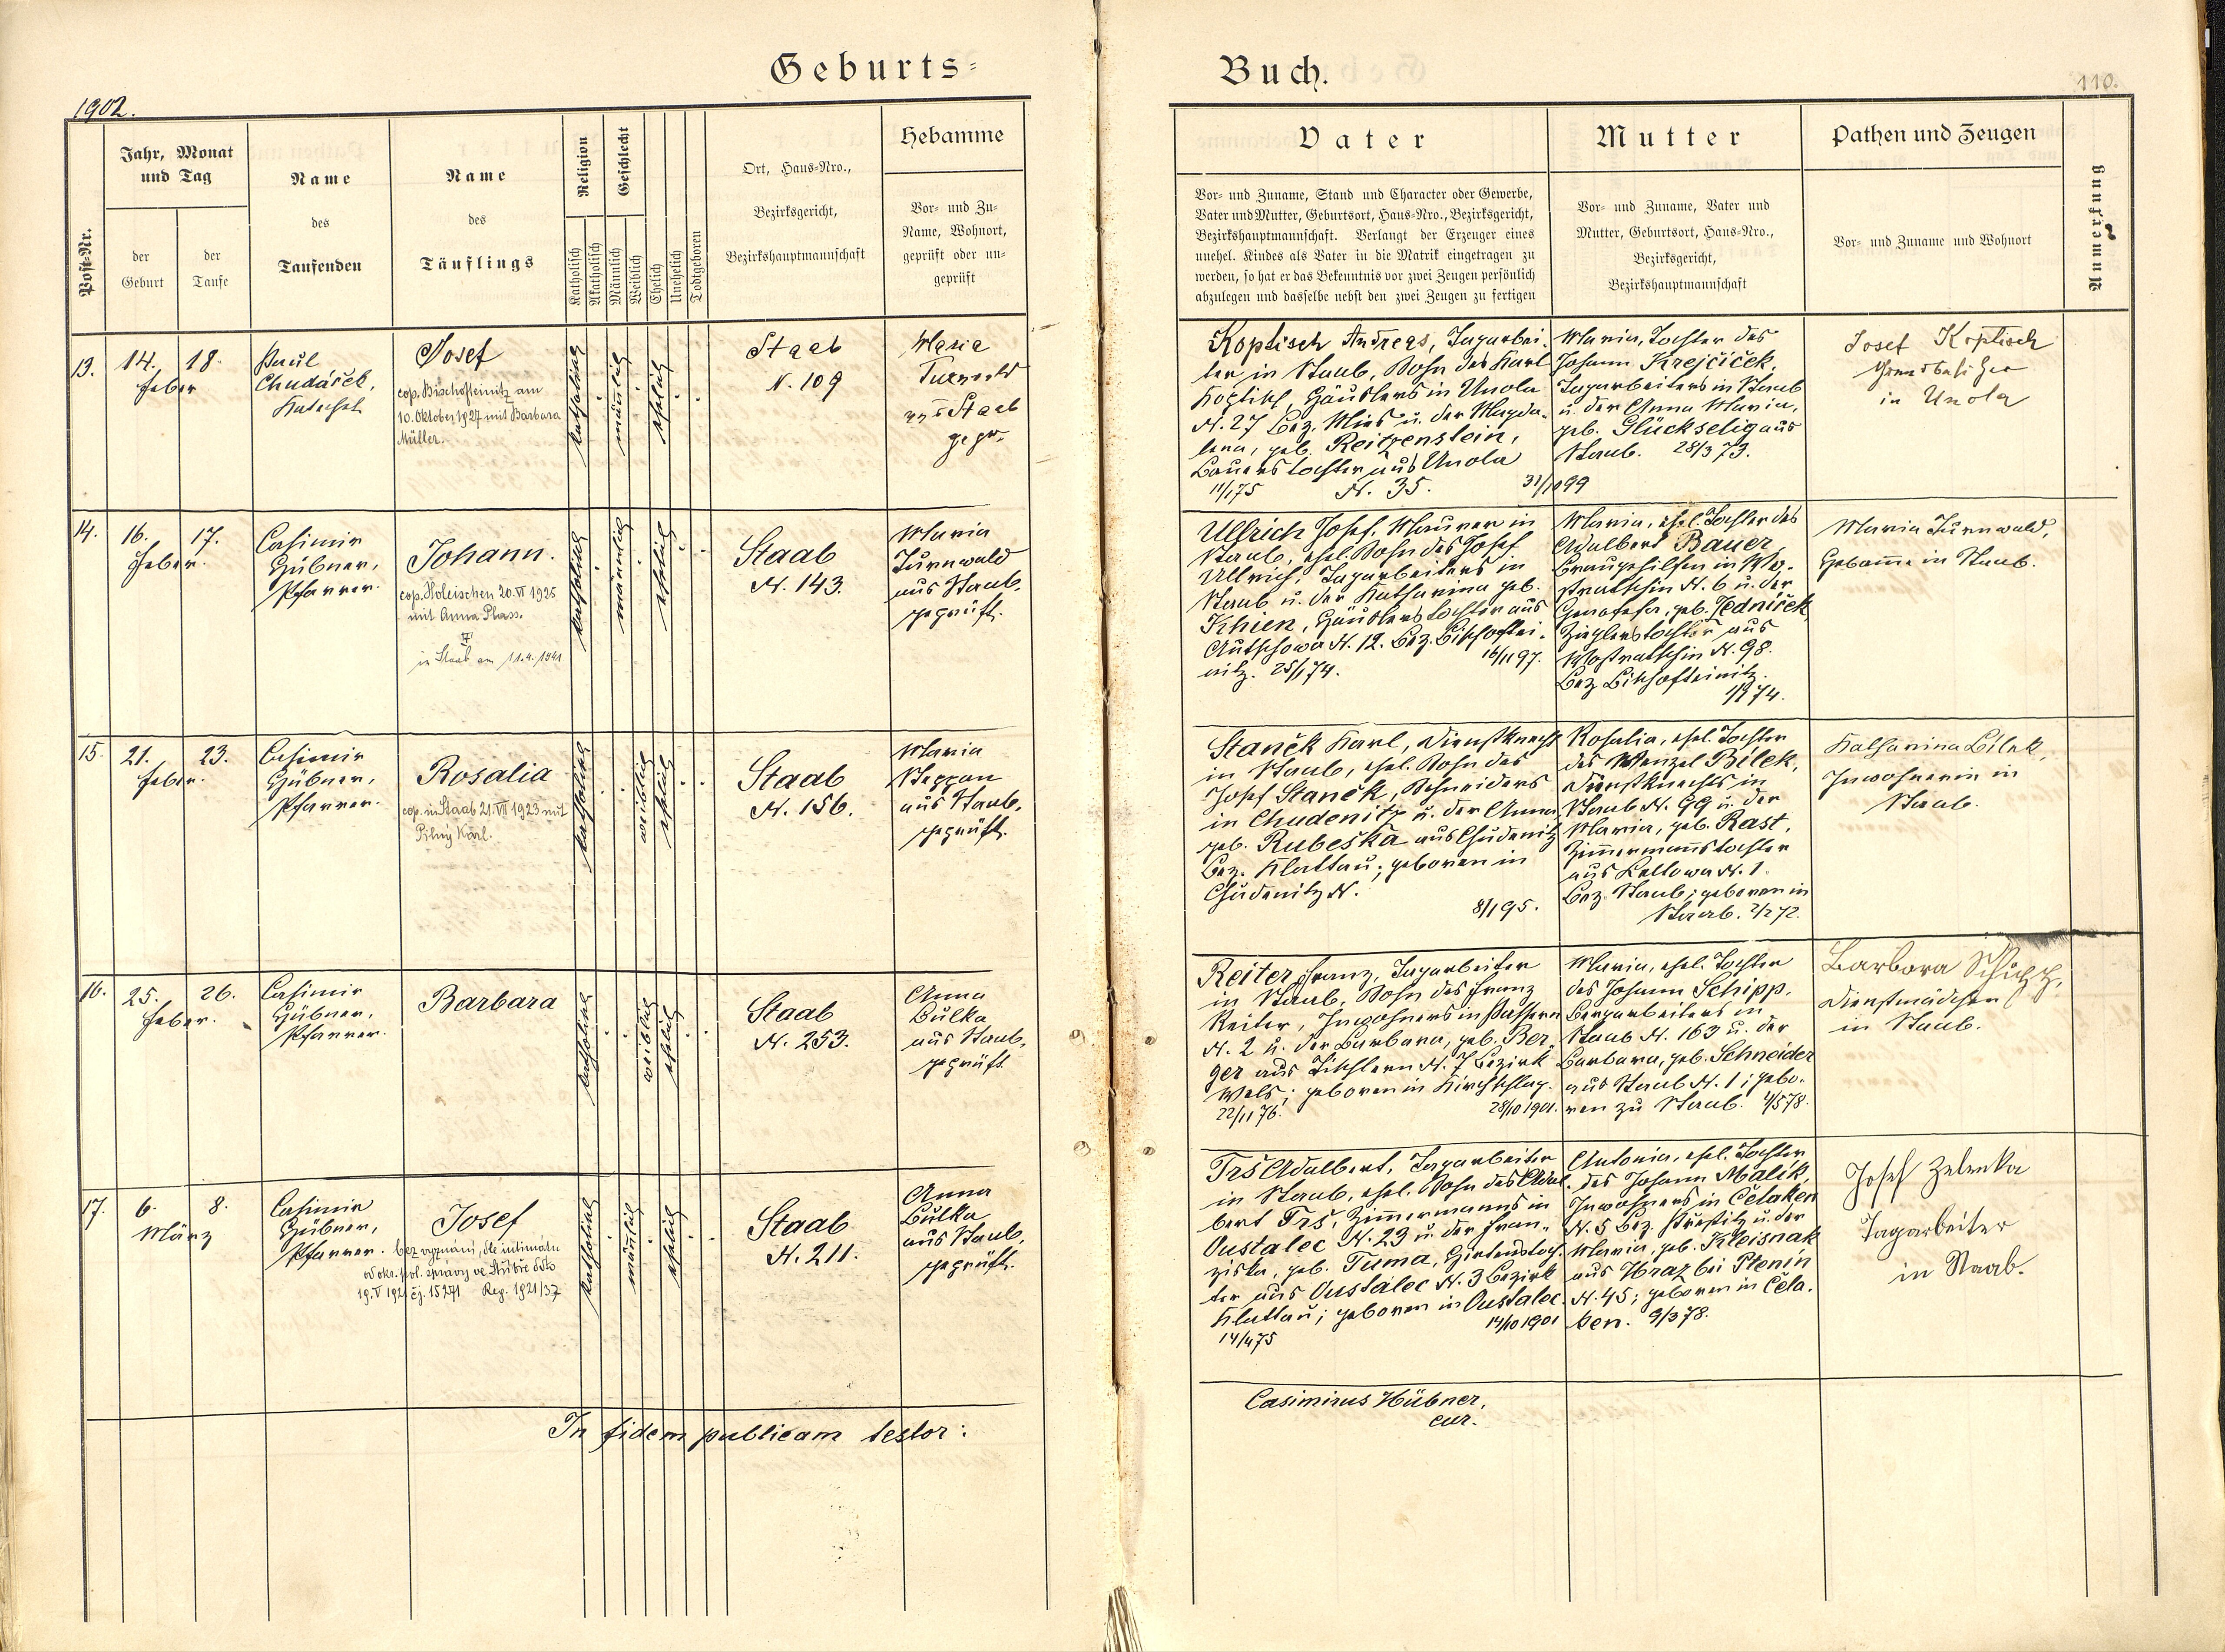 Geburts-
Buch.
110.
1902.
Post-Nr.
Jahr, Monat
und Tag
der
Geburt
der
Taufe
Name
des
Taufenden
Name
des
Täuflings
Religion
Katholisch
Akatholisch
Geschlecht
Männlich
Weiblich
Ehelich
Unehelich
Todtgeboren
Ort, Haus-Nro.,
Bezirksgericht,
Bezirkshauptmannschaft
Hebamme
Vor- und Zu-
Name, Wohnort,
geprüft oder un-
geprüft
Vater
Vor- und Zuname, Stand und Character oder Gewerbe,
Vater und Mutter, Geburtsort, Haus-Nro., Bezirksgericht,
Bezirkshauptmannschaft. Verlangt der Erzeuger eines
unehel. Kindes als Vater in die Matrik eingetragen zu
werden, so hat er das Bekenntnis vor zwei Zeugen persönlich
abzulegen und dasselbe nebst den zwei Zeugen zu fertigen
Mutter
Vor- und Zuname, Vater und
Mutter, Geburtsort, Haus-Nro.,
Bezirksgericht,
Bezirkshauptmannschaft
Pathen und Zeugen
Vor- und Zuname und Wohnort
Anmerkung
13.
14.
Feber
18.
Paul
Chudáček,
Katechet
Josef
cop. Bischofteinitz am
10. Oktober 1927 mit Barbara
Müller.
katholisch
männlich
ehelich
Staab
N. 109
Maria
Turnwald
aus Staab
gepr.
Koptisch Andreas, Tagarbei-
ter in Staab, Sohn des Karl
Koptisch, Häuslers in Unola
N. 27 Bez. Mies u. der Magda-
lena, geb. Reitzenstein,
Bauerstochter aus Unola
N. 35.
11/1 75
31/10 99
Maria, Tochter des
Johann Krejčiček,
Tagarbeiters in Staab
u. der Anna Maria,
geb. Glückselig aus
Staab. 28/3 73.
Josef Koptisch
Grundbesitzer
in Unola
14.
16.
Feber.
17.
Casimir
Hübner,
Pfarrer.
Johann.
cop. Holeischen 20. VI 1925
mit Anna Plass.
in Staab am 11.4.1941
katholisch
männlich
ehelich
Staab
N. 143.
Maria
Turnwald
aus Staab,
geprüft.
Ullrich Josef, Maurer in
Staab, ehel. Sohn des Josef
Ullrich, Tagarbeiters in
Staab u. der Katharina geb.
Khien, Häuslerstochter aus
Autschowa N. 12. Bez. Bischoftei-
nitz. 25/1 74.
16/11 97.
Maria, ehel. Tochter des
Adalbert Bauer,
Braugehilfen in Wo-
stratschin N. 6 u. der
Genofefa, geb. Jedniček,
Zieglerstochter aus
Wostratschin N. 98.
Bez. Bischofteinitz.
1/8 74.
Maria Turnwald,
Hebamme in Staab.
15.
21.
Feber.
23.
Casimir
Hübner,
Pfarrer.
Rosalia
cop. in Staab 21. VII 1923 mit
Pilný Karl.
katholisch
weiblich
ehelich
Staab
N. 156.
Maria
Steppan
aus Staab,
geprüft.
Stanĕk Karl, Dienstknecht
in Staab, ehel. Sohn des
Josef Stanĕk, Schneiders
in Chudenitz u. der Anna
geb. Rubeška aus Chudenitz
Bez. Klattau; geboren in
Chudenitz N.
8/1 95.
Rosalia, ehel. Tochter
des Wenzel Bilek,
Dienstknechts in
Staab N. 99 u. der
Maria, geb. Rast,
Zimmermannstochter
aus Lellowa N. 1
Bez. Staab; geboren in
Staab. 2/2 72.
Katharina Bilek,
Inwohnerin in
Staab.
16.
25.
Feber.
26.
Casimir
Hübner,
Pfarrer.
Barbara
katholisch
weiblich
ehelich
Staab
N. 253.
Anna
Bulka
aus Staab,
geprüft.
Reiter Franz, Tagarbeiter
in Staab, Sohn des Franz
Reiter, Inwohners in
N. 2 u. der Barbara, geb. Ber-
ger aus Tischlern N. 7 Bezirk
Wels; geboren in Kirchschlag.
22/11 76.
28/10 1901.
Maria, ehel. Tochter
des Johann Schipp,
Bergarbeiters in
Staab N. 163 u. der
Barbara, geb. Schneider
aus Staab N. 1; gebo-
ren zu Staab. 4/5 78.
Barbora Schipp,
Dienstmädchen
in Staab.
17.
6.
März
8.
Casimir
Hübner,
Pfarrer.
Josef
bez vyznání, dle intimátu
od okr. pol. správy ve Stříbře ddto
19. V 1921 čj. 15271 Reg. 1921/37
katholisch
männlich
ehelich
Staab
N. 211.
Anna
Bulka
aus Staab,
geprüft.
Trš Adalbert, Tagarbeiter
in Staab, ehel. Sohn des Adal-
bert Trš, Zimmermanns in
Oustalec N. 23 u. der Fran-
ziska, geb. Tuma, Häuslerstoch-
ter aus Oustalec N. 3 Bezirk
Klattau; geboren in Oustalec.
14/4 75
14/10 1901
Antonia, ehel. Tochter
des Johann Malik,
Inwohners in Čelaken
N. 5 Bez. Přestitz u. der
Maria, geb. Kleisnak
aus Hraz bei Ptenín
N. 45; geboren in Čela-
ken. 9/3 78.
Josef Zelenka
Tagarbeiter
in Staab.
In fidem publicam testor:
Casimirus Hübner,
cur.